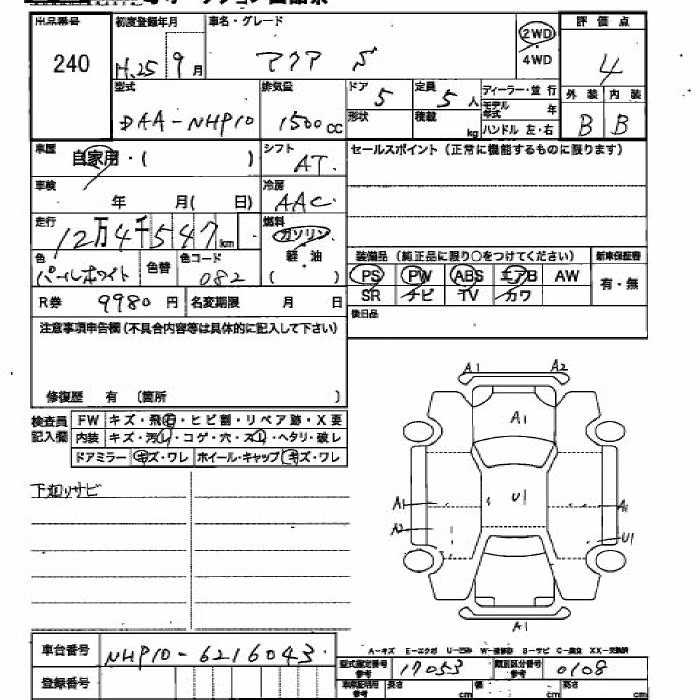 出品番号 初度登録年月 車名・グレード 評価点
240 H.25 9月 アクア S 2WD 4
4WD
型式 排気量 ドア 定員 ディーラー・並行 外装 内装
DAA-NHP10 1500cc 5 5人 モデル年式 年 B B
形状 積載 kg ハンドル 左・右
車歴 自家用・( ) シフト AT. セールスポイント(正常に機能するものに限ります)
車検 年 月( 日) 冷房 AAC
走行 12万4千547km 燃料 ガソリン
軽油
( )
色 パールホワイト 色替 色コード 082 装備品(純正品に限り○をつけてください) 新車保証書
PS PW ABS エアB AW 有・無
SR ナビ TV カワ
R券 9980円 名変期限 月 日 後日品
注意事項申告欄(不具合内容等は具体的に記入して下さい)
修復歴 有 〔箇所 〕
検査員記入欄 FW キズ・飛石・ヒビ割・リペア跡・X要
内装 キズ・汚レ・コゲ・穴・スレ・ヘタリ・破レ
ドアミラー キズ・ワレ ホイール・キャップ キズ・ワレ
下廻りサビ
A1 A2
A1
A1 U1 A1
A2 U1
A1
車台番号 NHP10-6216043
型式指定番号 17053 類別区分番号 0108
登録番号 参考 長さ cm 幅 cm 高さ cm